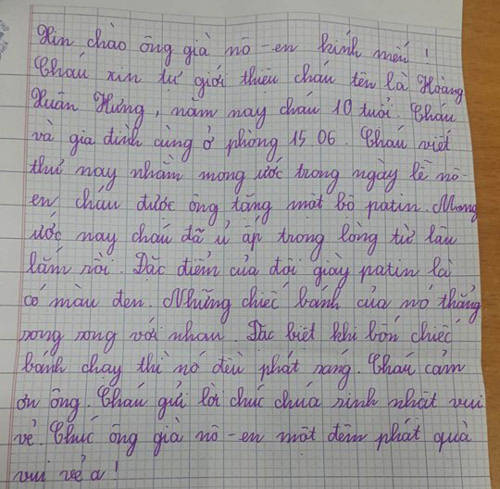 Xin chào ông già nô-en kính mến !
Cháu xin tự giới thiệu cháu tên là Hoàng
Xuân Hưng, năm nay cháu 10 tuổi. Cháu
và gia đình cùng ở phòng 1506. Cháu viết
thư nay nhằm mong ước trong ngày lễ nô-
en cháu được ông tặng một bộ patin. Mong
ước nay cháu đã ủ ấp trong lòng từ lâu
lắm rồi. Đặc điểm của đôi giày patin là
có màu đen. Những chiếc bánh của nó thẳng
song song với nhau. Đặc biệt khi bốn chiếc
bánh chạy thì nó đều phát sáng. Cháu cảm
ơn ông. Cháu gửi lời chúc chúa sinh nhật vui
vẻ. Chúc ông già nô-en một đêm phát quà
vui vẻ ạ !